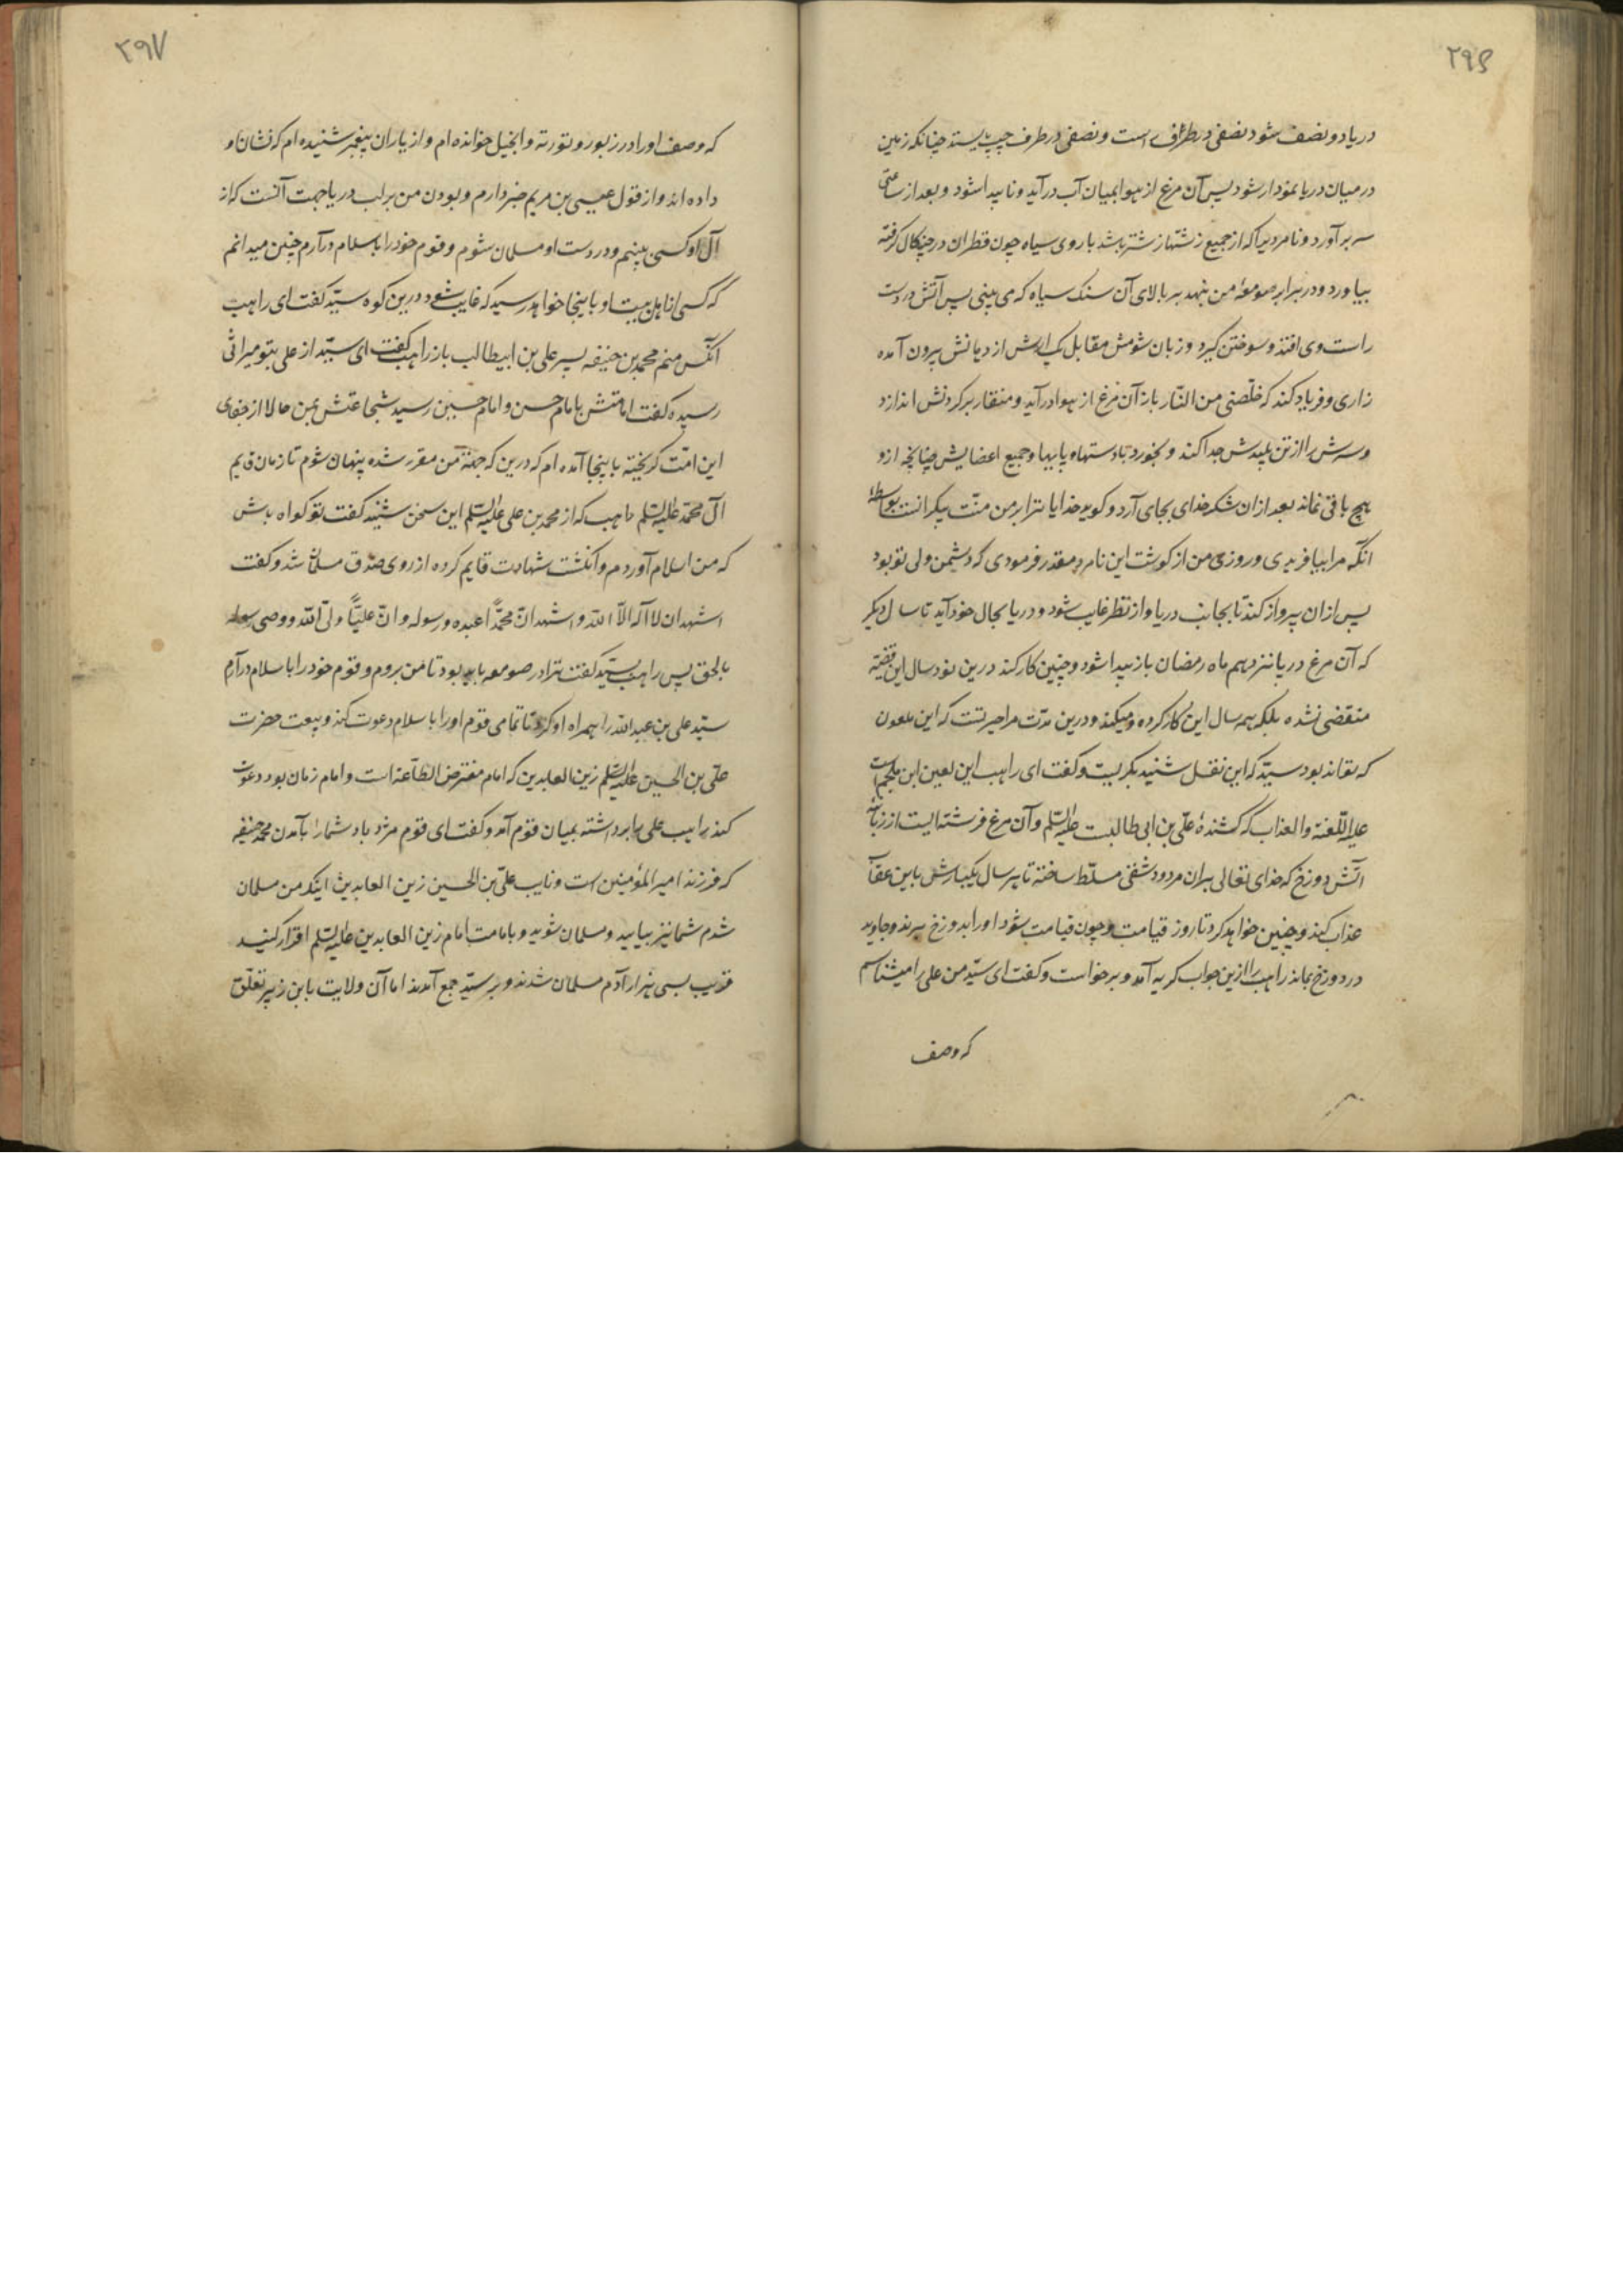 ۲۹۶
دریا دو نصف شود نصفی در طرف راست و نصفی در طرف چپ بایستد چنانکه زمین
در میان دریا نمودار شود پس آن مرغ از هوا بمیان آب درآید و ناپیدا شود و بعد از ساعتی
سر برآورد و نامردیرا که از جمیع زشتها زشتتر باشد با روی سیاه چون قطران در چنکال کرفته
بیاورد و در برابر صومعهٔ من بنهد بر بالای آن سنک سیاه که می بینی پس آتش در دست
راست وی افتد و سوختن کیرد و زبان شومش مقابل یک ارش از دهانش بیرون آمده
زاری و فریاد کند که خلّصنی من النّار باز آن مرغ از هوا درآید و منقار بر کردنش اندازد
و سرش را از تن پلیدش جدا کند و بخورد تا دستها و پایها و جمیع اعضایش چنانچه ازو
هیچ باقی نماند بعد ازان شکر خدای بجای آرد و کوید خدایا ترا بر من منّت بیکرانست بواسطهٔ
انکه مرا بیافریدی و روزی من از کوشت این نامرد مقدر فرمودی که دشمن ولی تو بود
پس ازان پرواز کند تا بجانب دریا و از نظر غایب شود و دریا بحال خود آید تا سال دیکر
که آن مرغ دریا نزدهم ماه رمضان باز پیدا شود و چنین کار کند درین نود سال این قضیّه
منقضی نشده بلکه همه سال این کار کرده و میکند و درین مدّت مرا حیرتست که این ملعون
که تواند بود سیّد که این نقل شنید بکریست و کفت ای راهب این لعین ابن ملجم است
علیه اللّعنة والعذاب که کشندهٔ علی بن ابی طالبست علیه السّلم و آن مرغ فرشته ایست از زبانهٔ
آتش دوزخ که خدای تعالی بر ان مردود شقی مسلّط ساخته تا هر سال یکبارش باین عقاب
عذاب کند و چنین خواهد کرد تا روز قیامت و چون قیامت شود او را بدوزخ برند و جاوید
در دوزخ بماند راهب را ازین جواب کریه آمد و برخواست و کفت ای سیّد من علی را میشناسم
که وصف
۲۹۷
که وصف او را در زبور و توریة و انجیل خوانده ام و از یاران پیغمبر شنیده ام که نشان او
داده اند و از قول عیسی بن مریم خبر دارم و بودن من بر لب دریا جهت آنست که از
آل او کسی ببینم و در دست او مسلمان شوم و قوم خود را باسلام درآرم چنین میدانم
که کسی از اهل بیت او باینجا خواهد رسید که غایب شود درین کوه سیّد کفت ای راهب
انکس منم محمد بن حنیفه پسر علی بن ابیطالب باز راهب کفت ای سیّد از علی بتو میراثی
رسیده کفت امامتش بامام حسن و امام حسین رسید شجاعتش بمن حالا از جفای
این امّت کریخته باینجا آمده ام که درین که جهة من مقرر شده پنهان شوم تا زمان قایم
آل محمّد علیه السّلم راهب که از محمد بن علی علیه السّلم این سخن شنید کفت تو کواه باش
که من اسلام آوردم و انکشت شهادت قایم کرده از روی صدق مسلمان شد و کفت
اشهد ان لا اله الاّ اللّه و اشهد انّ محمّداً عبده و رسوله و انّ علیّاً ولی اللّه و وصی رسوله
بالحق پس راهب بسیّد کفت ترا در صومعه باید بود تا من بروم و قوم خود را باسلام درآرم
سیّد علی بن عبداللّه را همراه او کرد تا تمامی قوم او را باسلام دعوت کند و بیعت حضرت
علی بن الحسین علیه السّلم زین العابدین که امام مفترض الطّاعة است و امام زمان بود دعوت
کند راهب علی را برداشته بمیان قوم آمد و کفت ای قوم مژده باد شما را بآمدن محمد حنیفه
که فرزند امیر المؤمنین است و نایب علی بن الحسین زین العابدین اینک من مسلمان
شدم شما نیز بیایید و مسلمان شوید و بامامت امام زین العابدین علیه السّلم اقرار کنید
قریب بسی هزار آدم مسلمان شدند و بر سیّد جمع آمدند اما آن ولایت بابن زبیر تعلّق